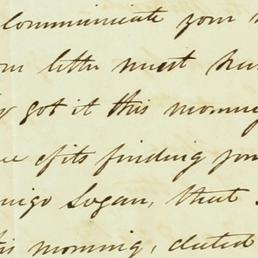 communicate your
letter must
got it this morning
of its finding you
Logan, that
this morning, dated